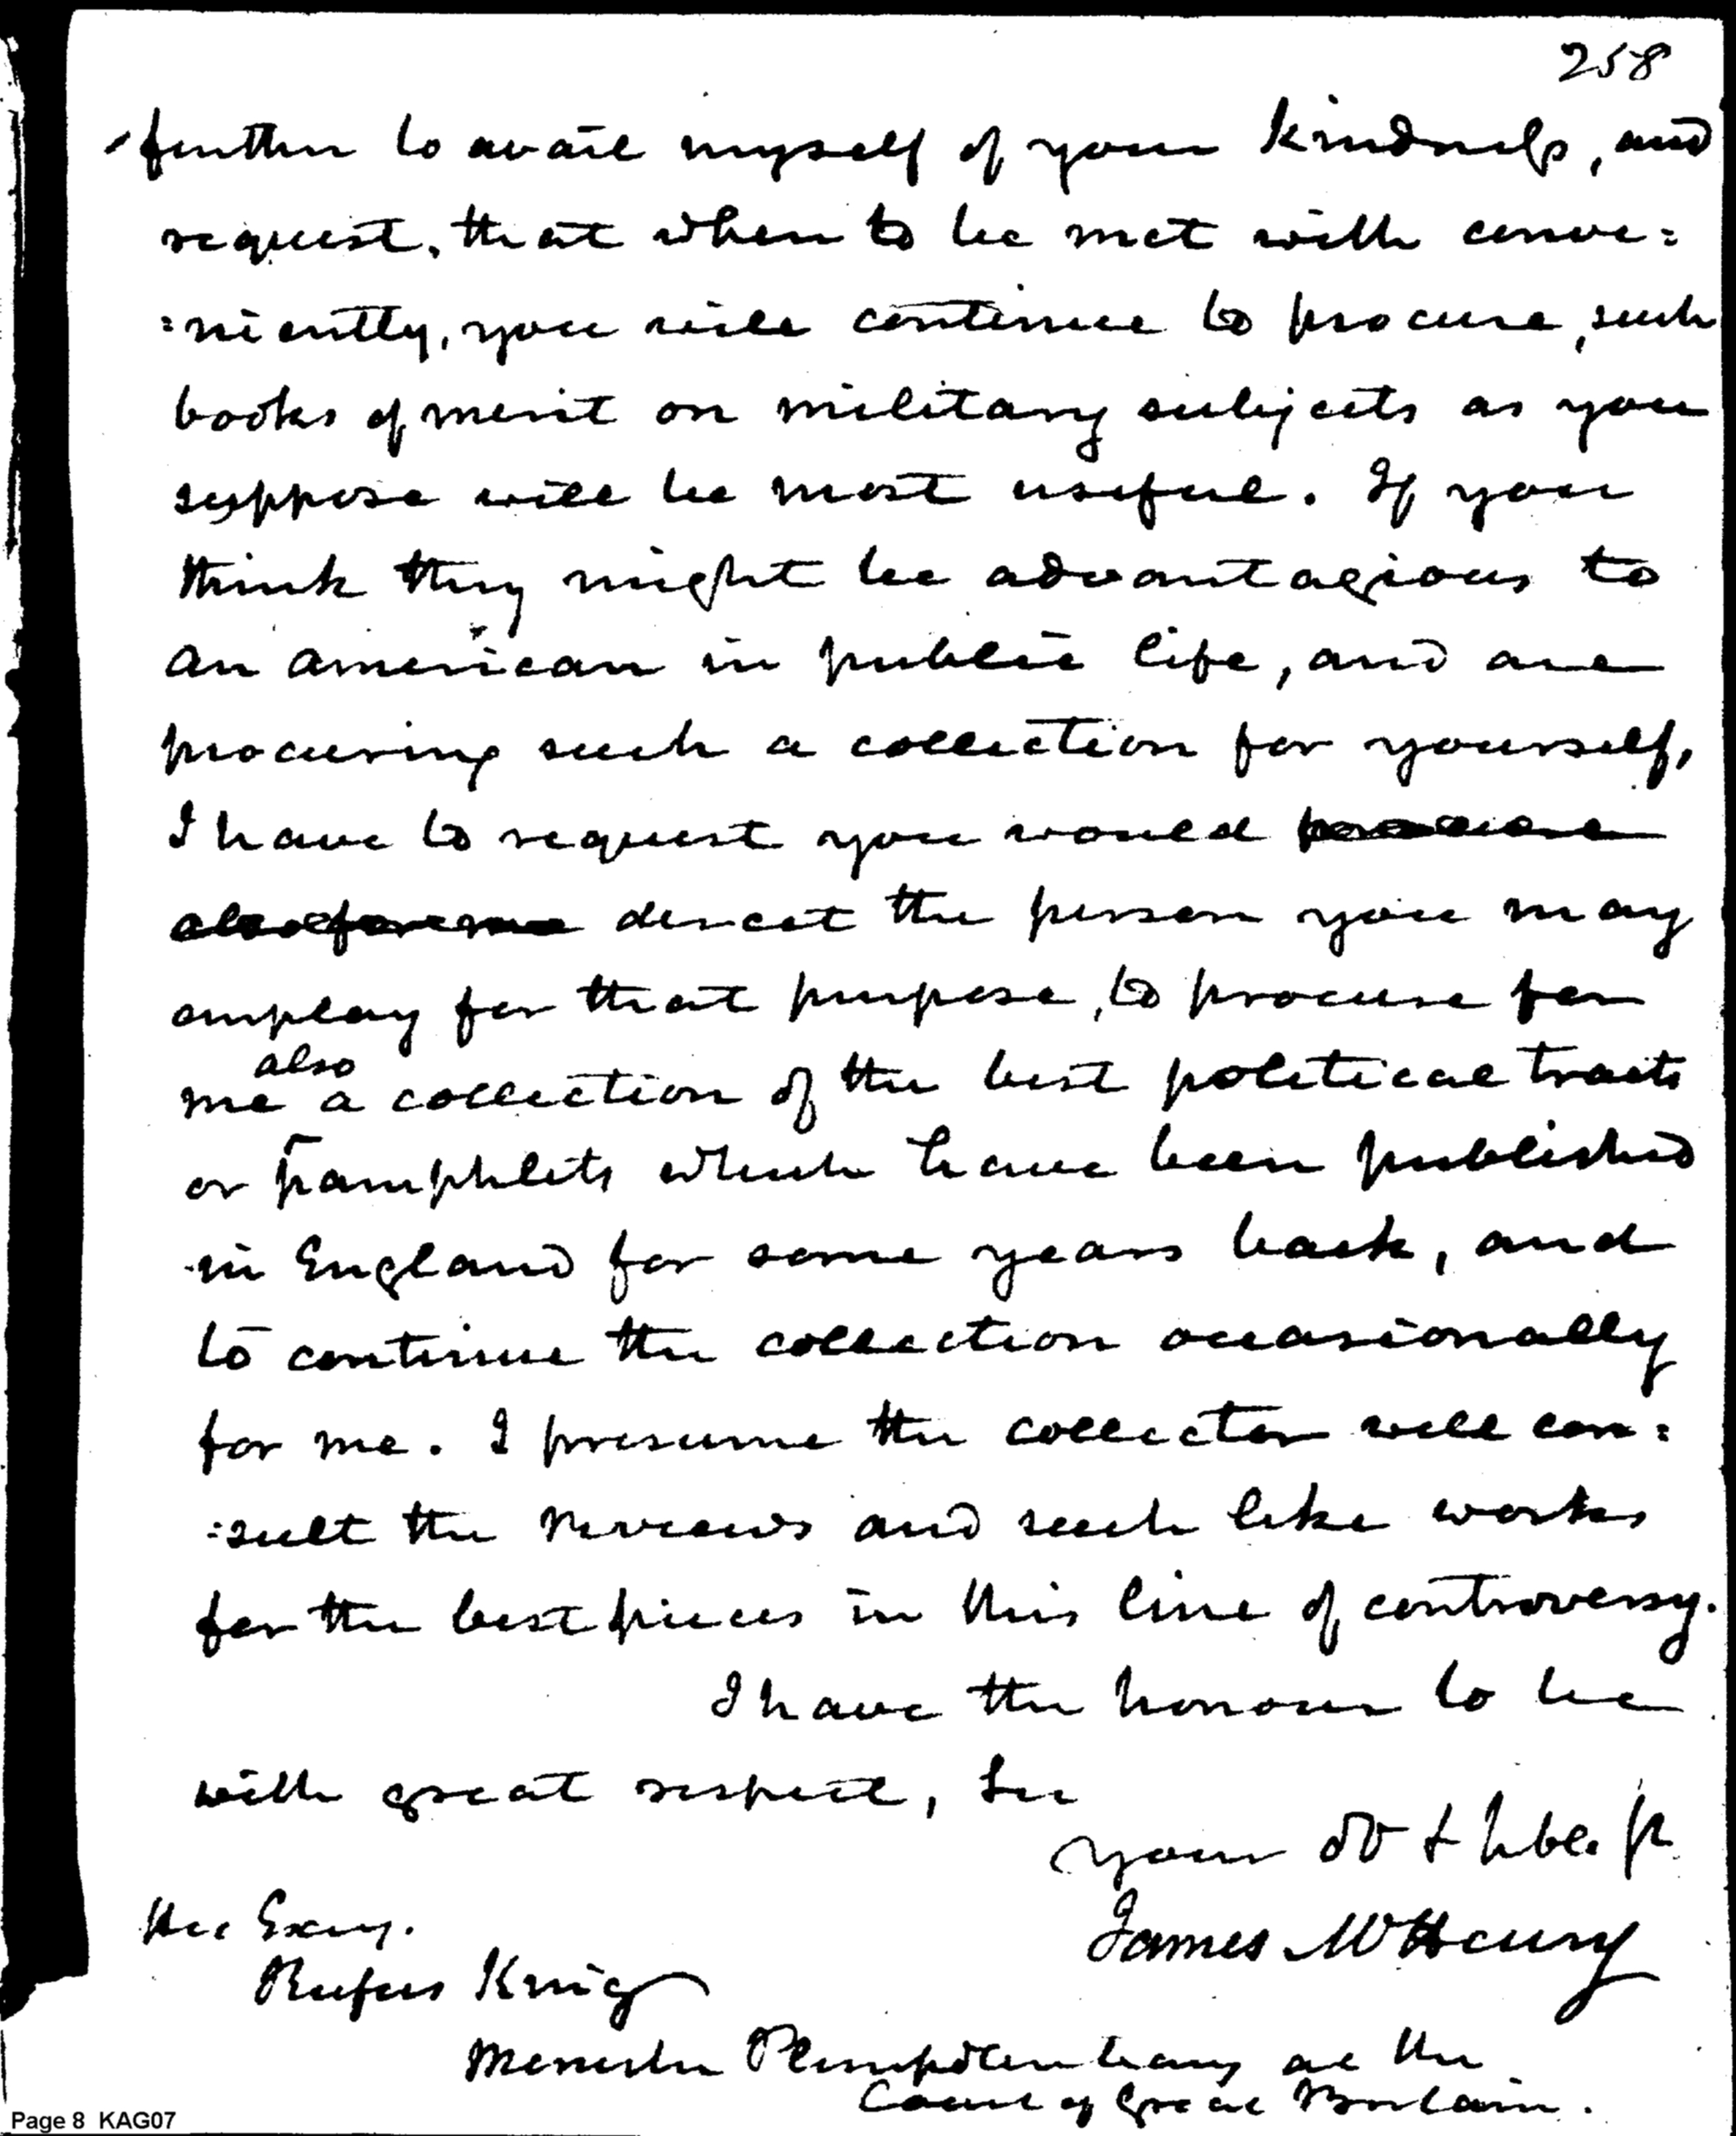 258
further to avail myself of your kindness, and
request, that when to be met with conve=
=niently, you will continue to procure, such
books of merit on military subjects as you
suppose will be most useful. If you
think they might be advantagious to
an american in public life, and are
procuring such a collection for yourself,
I have to request you would procure
also for me direct the person you may
employ for that purpose, to procure for
also
me a collection of the best political tracts
or pamphlets which have been published
in England for some years back, and
to continue the collection occasionally
for me. I presume the collector will con=
=sult the reviews and such like works
for the best pieces in this line of controversy.
I have the honour to be
with great respect, Sir
your Ob t & hble. 
James McHenry
His Excy.
Rufus King
Minister Plenipotentiary at the
Court of Great Britain.
Page 8 KAG07